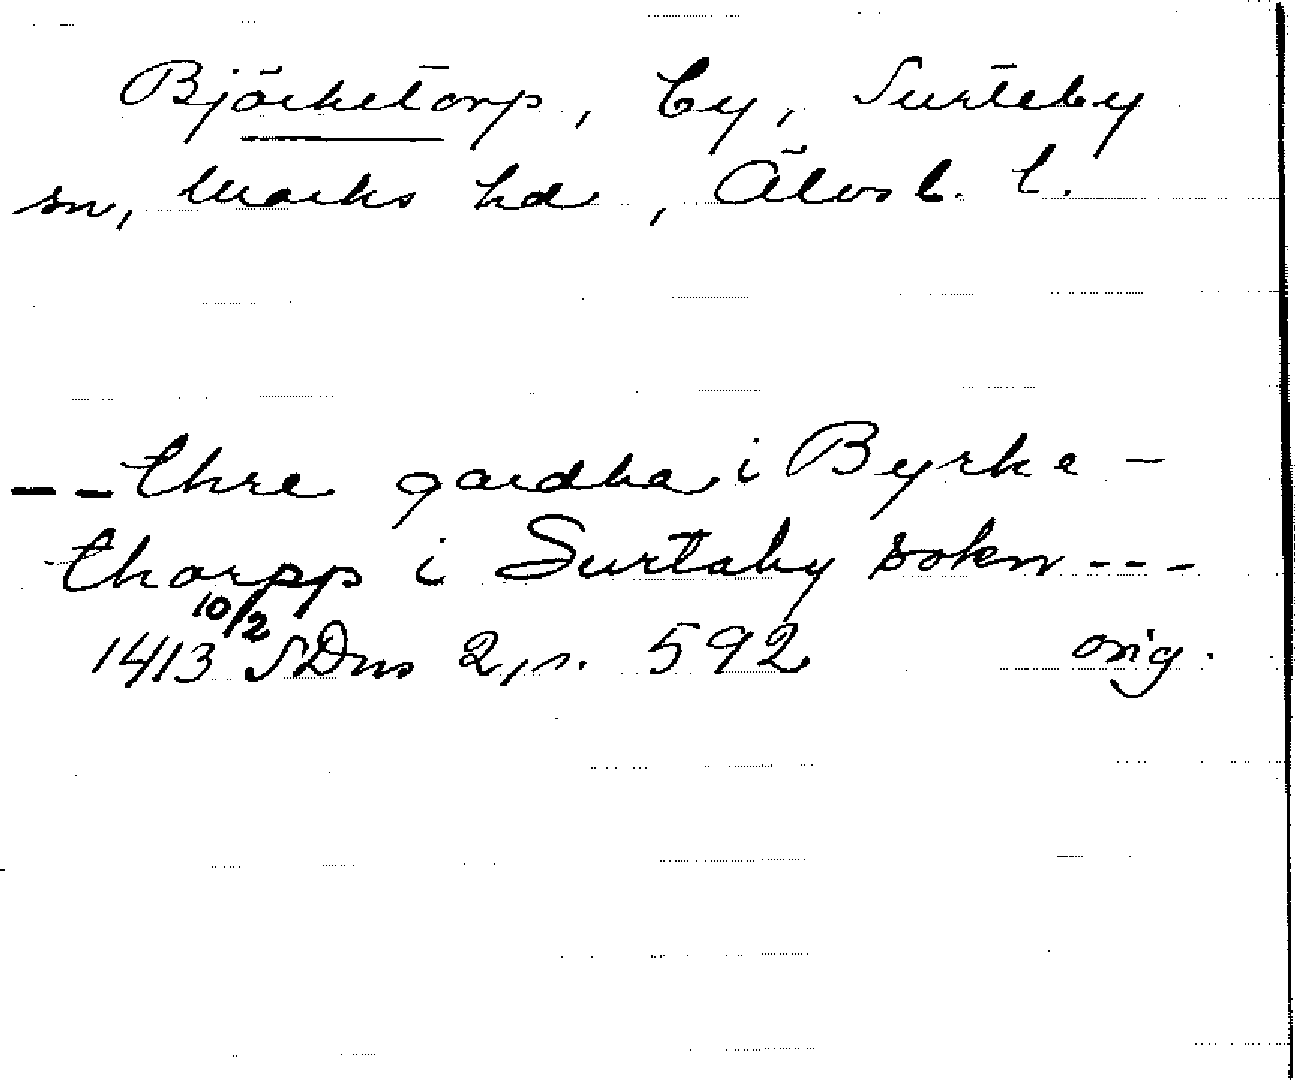 Björketorp, by, Surteby
sn, Marks hd, Älvsb. l.
-- thre gardha i Byrke-
thorpp i Surtaby sokn ---
1413 10/2 SDns 2, s. 592 orig.